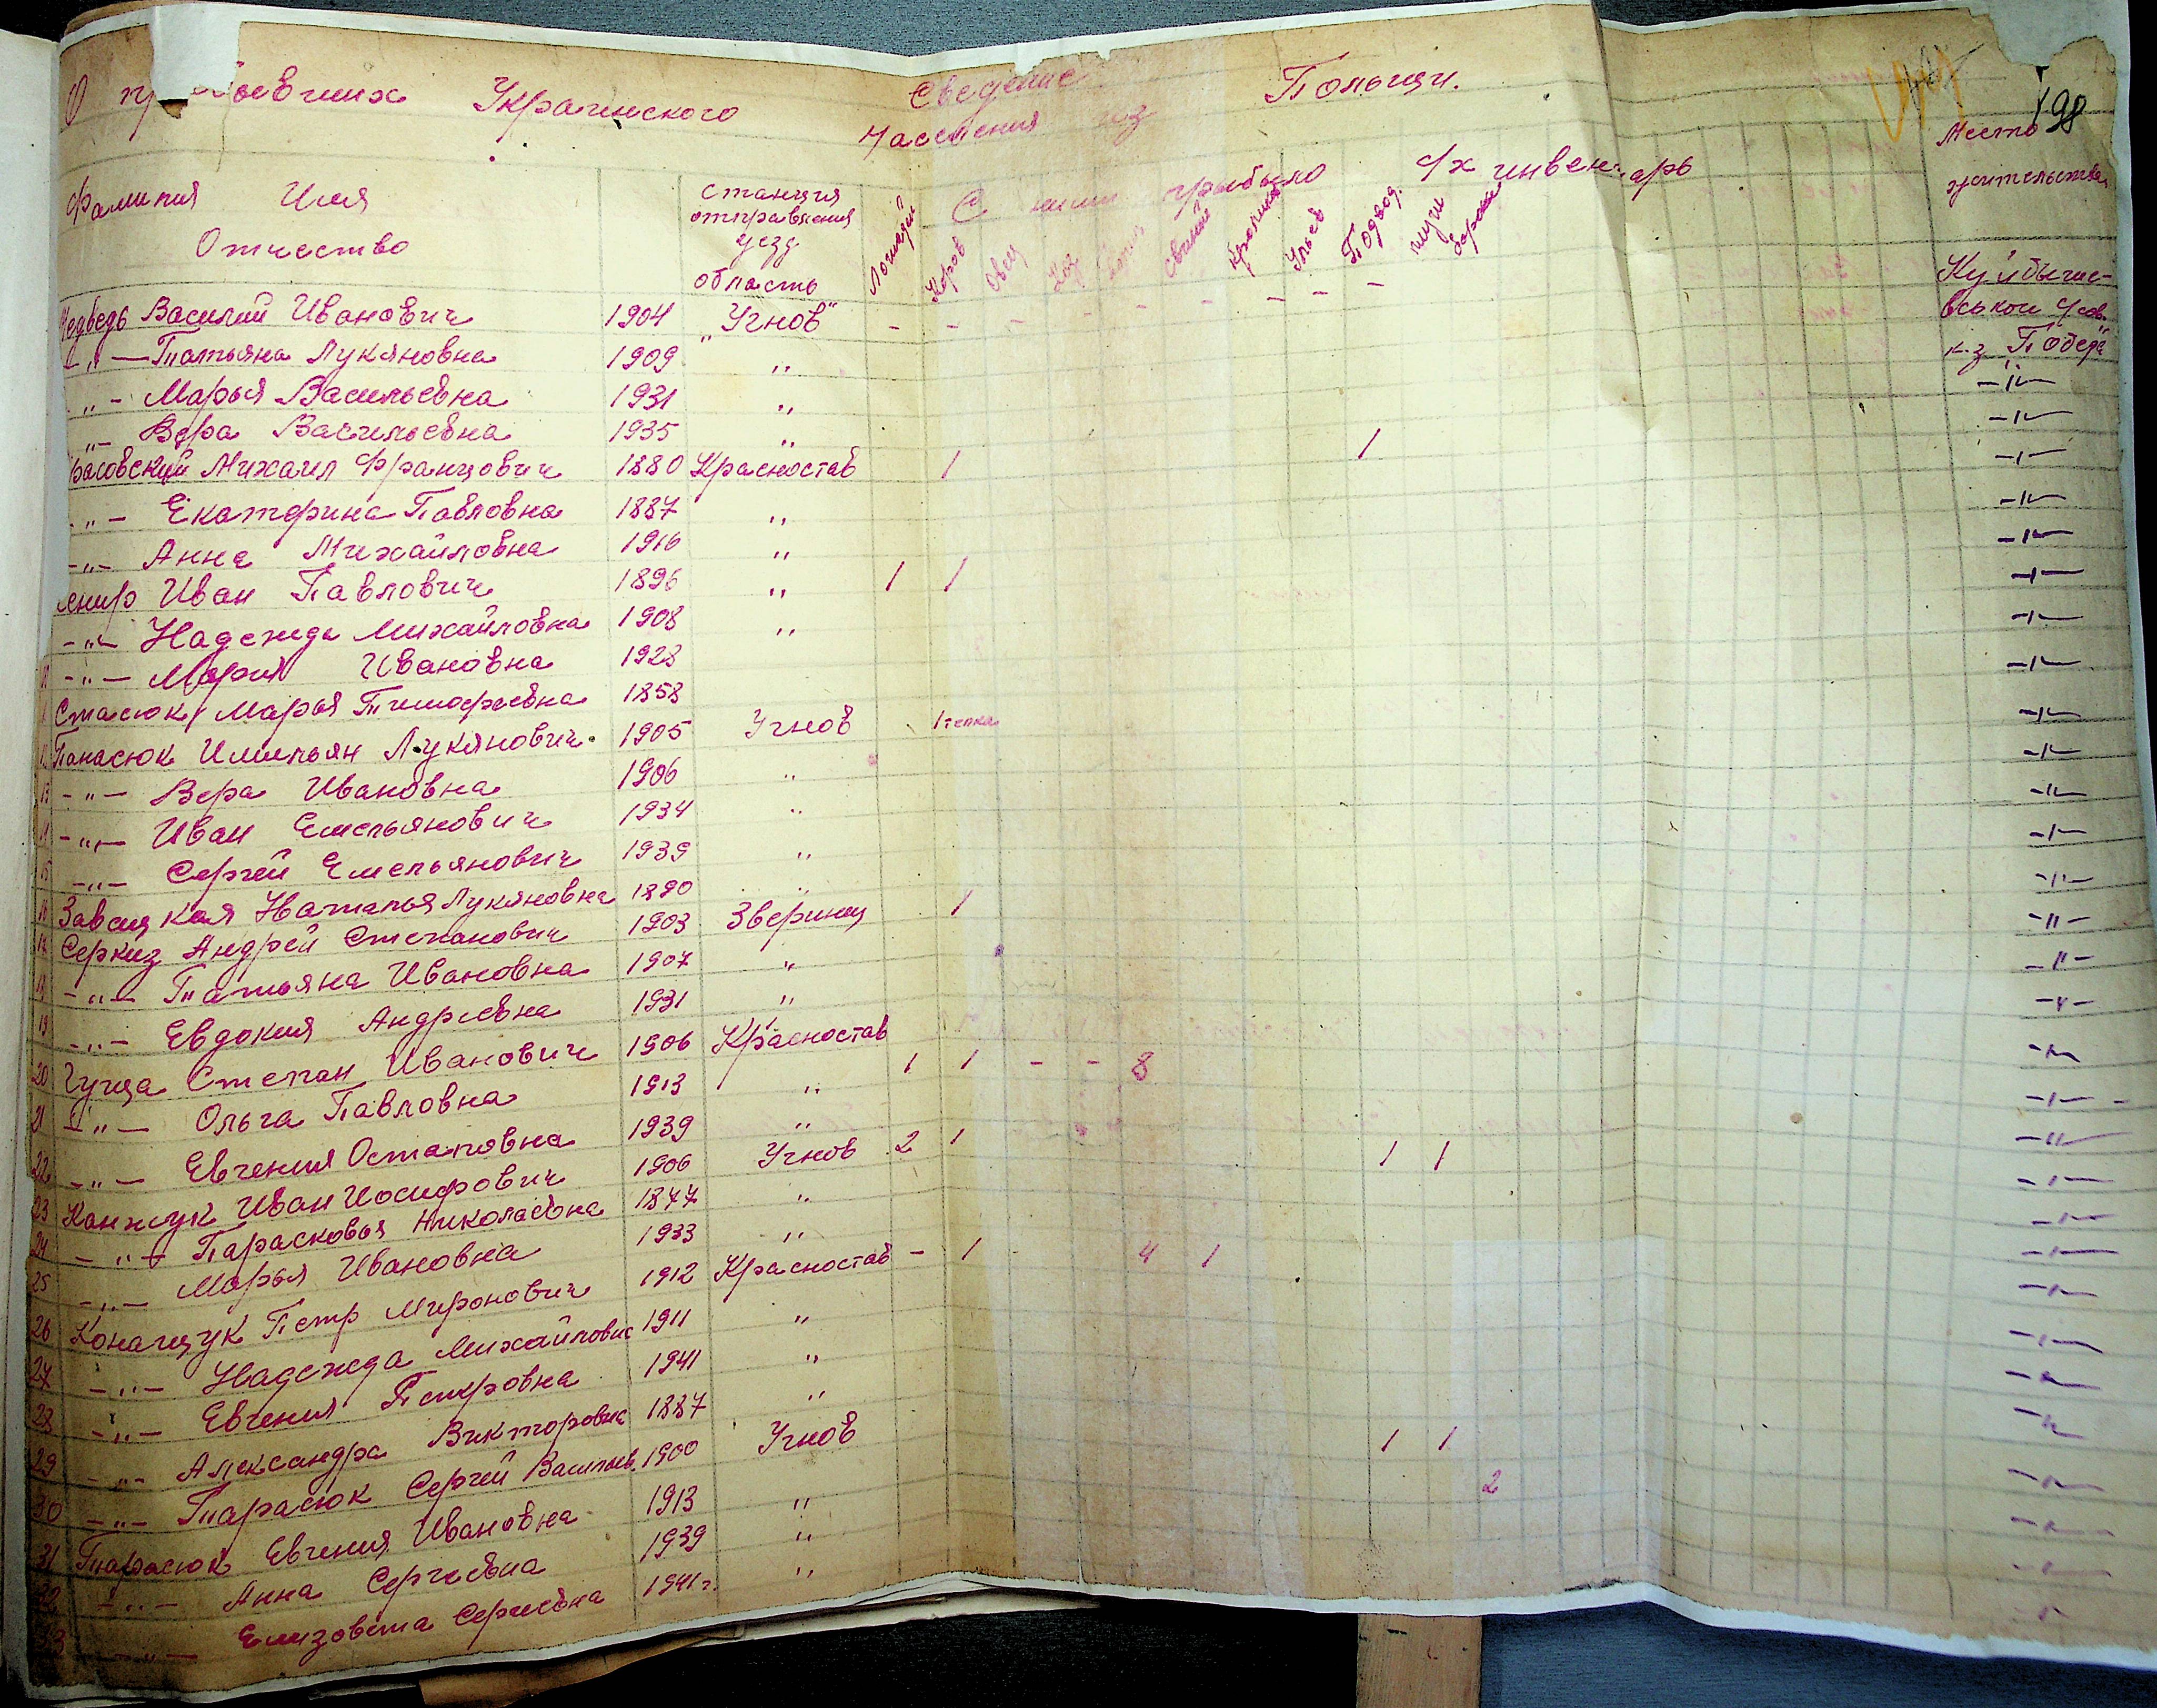 Сведение
О пр бывших Украинского населения из Польщи.
198
Фамилия Имя Отчество
Станция отправления уезд область
С ними прибыло с/х инвентарь
Лошадей Коров Овец Коз Свиней Кроликов Ульев Подвод плуги борони
Место жительства
Медведь Василий Иванович 1904 "Угнов" - - - - - - - - - Куйбышевской
-"- Татьяна Лукяновна 1909 " к-з "Победа"
-"- Марья Васильевна 1931 " -"-
-"- Вера Васильевна 1935 " -"-
расовский Михаил Францович 1880 Красностав 1 1 -"-
-"- Екатерина Павловна 1887 " -"-
-"- Анна Михайловна 1916 " -"-
Иван Павлович 1896 " 1 1 -"-
-"- Надежда Михайловна 1908 " -"-
-"- Мария Ивановна 1928 -"-
Стасюк Марья Тимофеевна 1858 -"-
Панасюк Имильян Лукянович 1905 Угнов 1 телка -"-
13 -"- Вера Ивановна 1906 " -"-
14 -"- Иван Емельянович 1934 " -"-
15 -"- Сергей Емельянович 1939 " -"-
16 Завацкая Наталья Лукяновна 1890 " -"-
17 Серкиз Андрей Степанович 1903 Зверинец 1 -"-
18 -"- Татьяна Ивановна 1907 " -"-
19 -"- Евдокия Андреевна 1931 " -"-
20 Гуща Степан Иванович 1906 Красностав 1 1 - - 8 -"-
21 -"- Ольга Павловна 1913 " -"-
22 -"- Евгения Остаповна 1939 " -"-
23 Канжук Иван Иосифович 1906 Угнов 2 1 1 1 -"-
24 -"- Парасковья Николаевна 1877 " -"-
25 -"- Марья Ивановна 1933 " -"-
26 Конащук Петр Миронович 1912 Красностав - 1 - 4 1 -"-
27 -"- Надежда Михайловна 1911 " -"-
28 -"- Евгения Петровна 1941 " -"-
29 -"- Александра Викторовна 1887 " -"-
30 -"- Тарасюк Сергей Васильев. 1900 Угнов 1 1 2 -"-
31 Тарасюк Евгения Ивановна 1913 " -"-
32 -"- Анна Сергеевна 1939 " -"-
33 -"- Елизовета Сергеевна 1941 г. " -"-